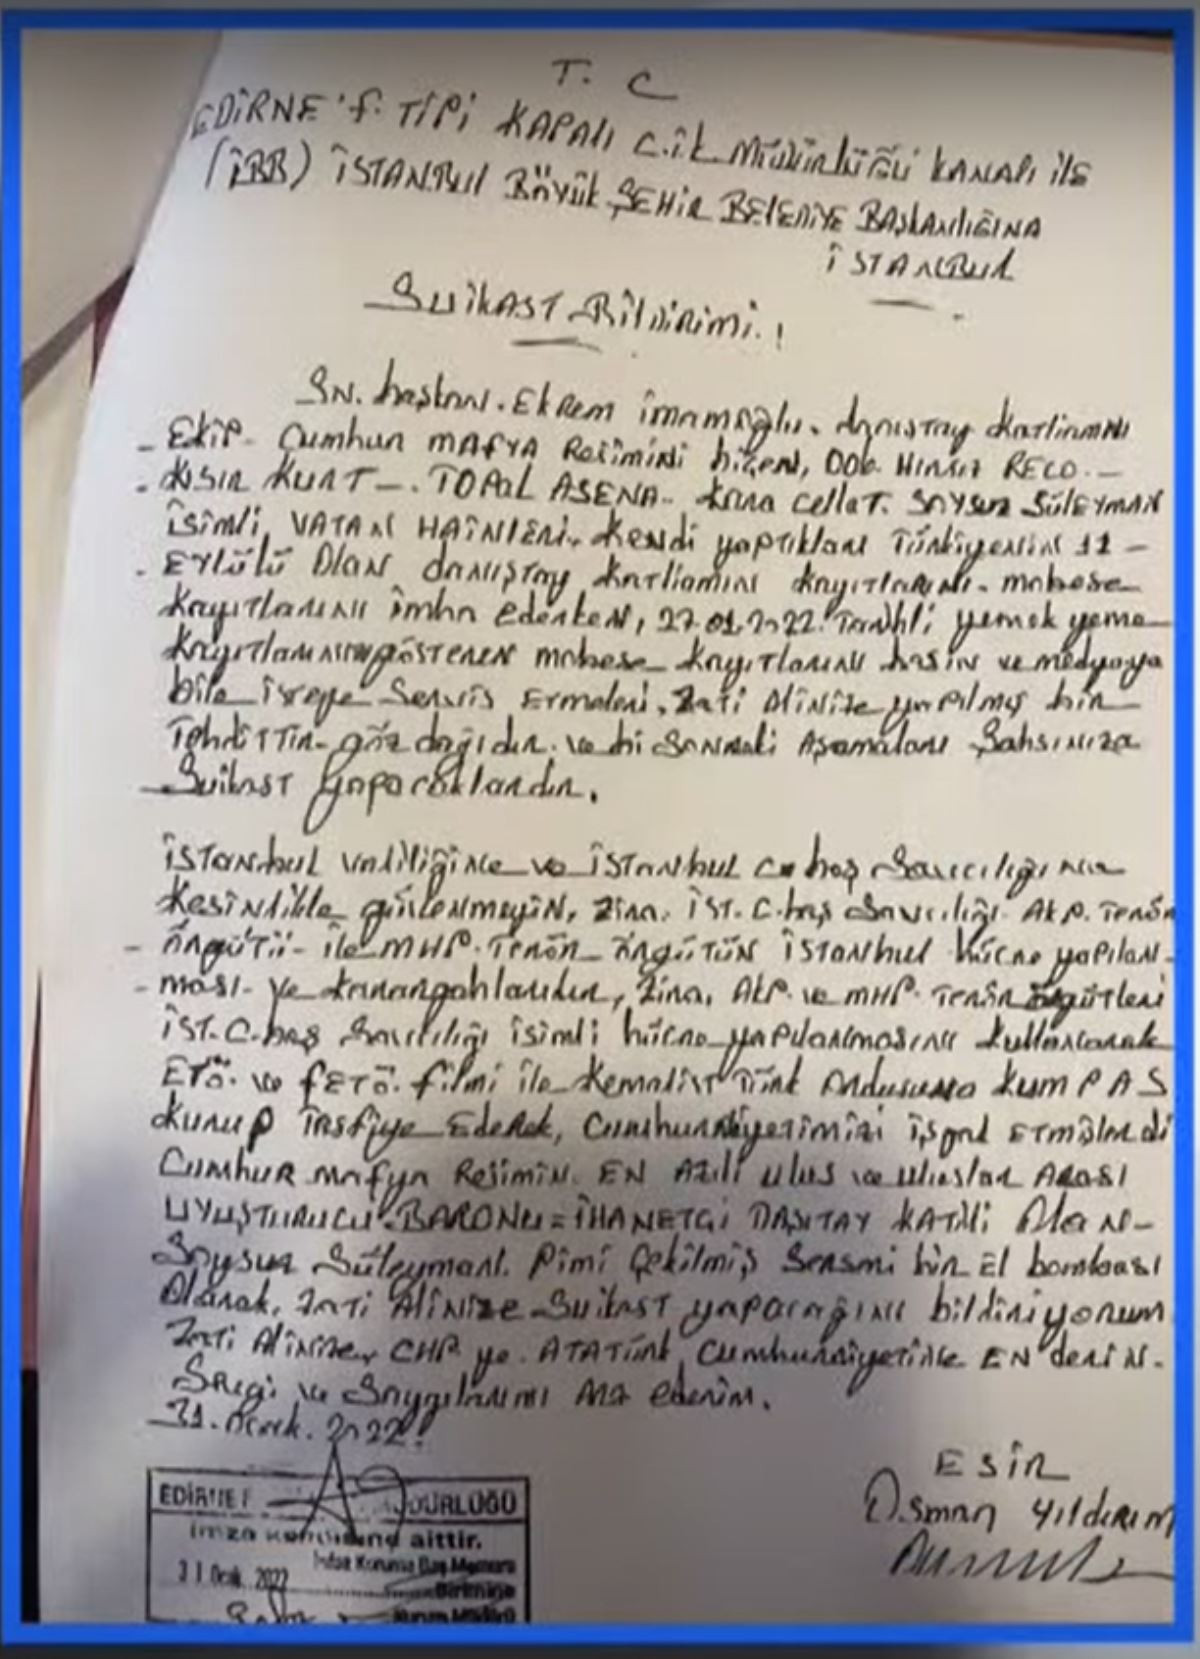 T. C
EDİRNE F. TİPİ KAPALI C.İK MÜDÜRLÜĞÜ KANALI ile
(İBB) İSTANBUL BÜYÜK ŞEHİR BELEDİYE BAŞKANLIĞINA
İSTANBUL
Suikast Bildirimi.!
SN. başkan. Ekrem imamoğlu. danıştay katliamını
- Ekip- Cumhur MAFYA Rejimini HIRSIZ RECO.-
- KISIR KURT-. TOPAL ASENA- kara cellat. SOYSUZ SÜLEYMAN
İsimli, VATAN HAİNLERİ. kendi yaptıkları Türkiyenin 11-
- EYLÜLÜ Olan danıştay katliamın kayıtlarını. mobese
kayıtlarını imha ederken, 27.01.2022. Tarihli yemek yeme
kayıtlarını gösteren mobese kayıtlarını basın ve medyaya
bile isteye Servis Etmeleri. Zati Alinize yapılmış bir
Tehdittir- göz dağıdır. ve bi Sonraki Aşamaları Şahsınıza
Suikast yapacaklardır.
İstanbul valiliğine ve İstanbul C. baş Savcılığına
kesinlikle güvenmeyin, zira. İST. C. baş Savcılığı. AKP. Terör
- örgütü- ile MHP. Terör- örgütün İstanbul hücre yapılan-
- ması- ve karargahlarıdır, zira, AKP. ve MHP. Terör örgütleri
İST. C. baş Savcılığı isimli hücre yapılanmasını kullanarak
ETÖ. ve FETÖ. filmi ile Kemalist Türk Ordusuna KUMPAS
kurup Tasfiye Ederek, Cumhuriyetimizi işgal
Cumhur mafya Rejimin. EN AZILI ulus ve uluslar ARASI
UYUŞTURUCU. BARONU= İHANETÇİ KATİLİ Olan-
Soysuz Süleyman. Pimi Çekilmiş Serseri bir El bombası
Olarak, Zati Alinize Suikast yapacağını bildiriyorum
Zati Alinize, CHP. ye. ATATÜRK Cumhuriyetine EN derin-
Sevgi ve Saygılarımı Arz ederim.
31. Ocak. 2022.
ESİR
Osman YILDIRIM
EDİRNE F MÜDÜRLÜĞÜ
imza kendisine aittir.
31 Ocak 2022 İnfaz Koruma Baş Memuru
Birimine
Kurum Müdürü